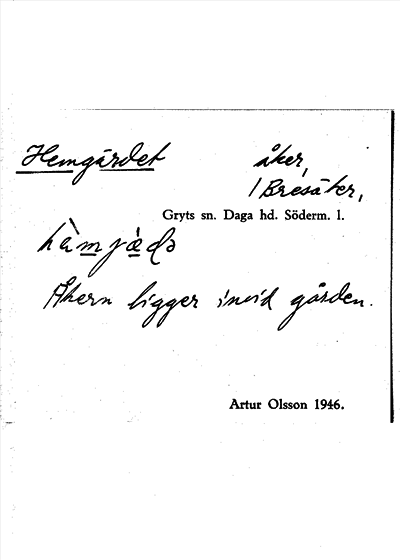 Hemgärdet åker,
1 Bresäter,
Gryts sn. Daga hd. Söderm. l.
hàmjæ̀ḍə
Åkern ligger invid gården.
Artur Olsson 1946.